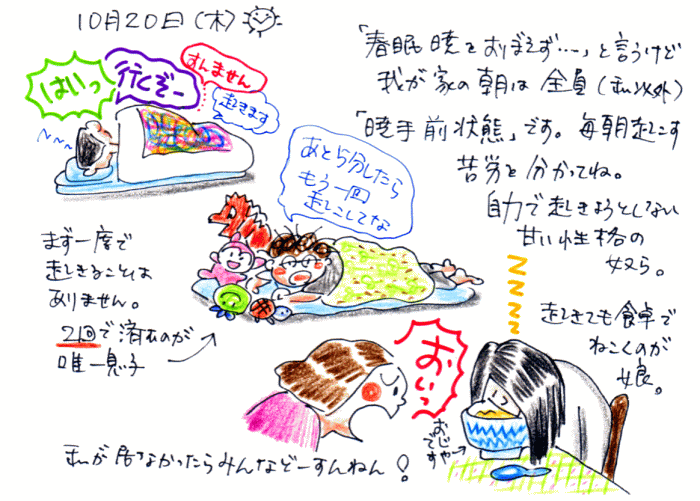 10月20日(木)
はいっ
行くぞー
すんません
起きます
「春眠暁をおぼえず…」と言うけど
我が家の朝は全員(私以外)
「暁手前状態」です。毎朝起こす
苦労を分かってね。
自力で起きようとしない
甘い性格の
奴ら。
あと5分したら
もう一回
起こしてな
まず一度で
起きることは
ありません。
2回で済むのが
唯一息子
ZZZZ
起きても食卓で
ねこくのが
娘。
おいっ
おじや
ですや
私が居なかったらみんなどーすんねん!